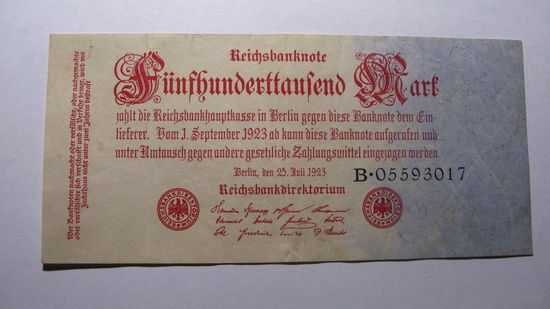 Reichsbanknote
Fünfhunderttausend Mark
zahlt die Reichsbankhauptkasse in Berlin gegen diese Banknote dem Ein-
lieferer. Vom 1. September 1923 ab kann diese Banknote aufgerufen und
unter Umtausch gegen andere gesetzliche Zahlungsmittel eingezogen werden
Berlin, den 25. Juli 1923
Reichsbankdirektorium
B·05593017
Wer Banknoten nachmacht oder verfälscht, oder nachgemachte
oder verfälschte sich verschafft und in Verkehr bringt, wird mit
Zuchthaus nicht unter zwei Jahren bestraft